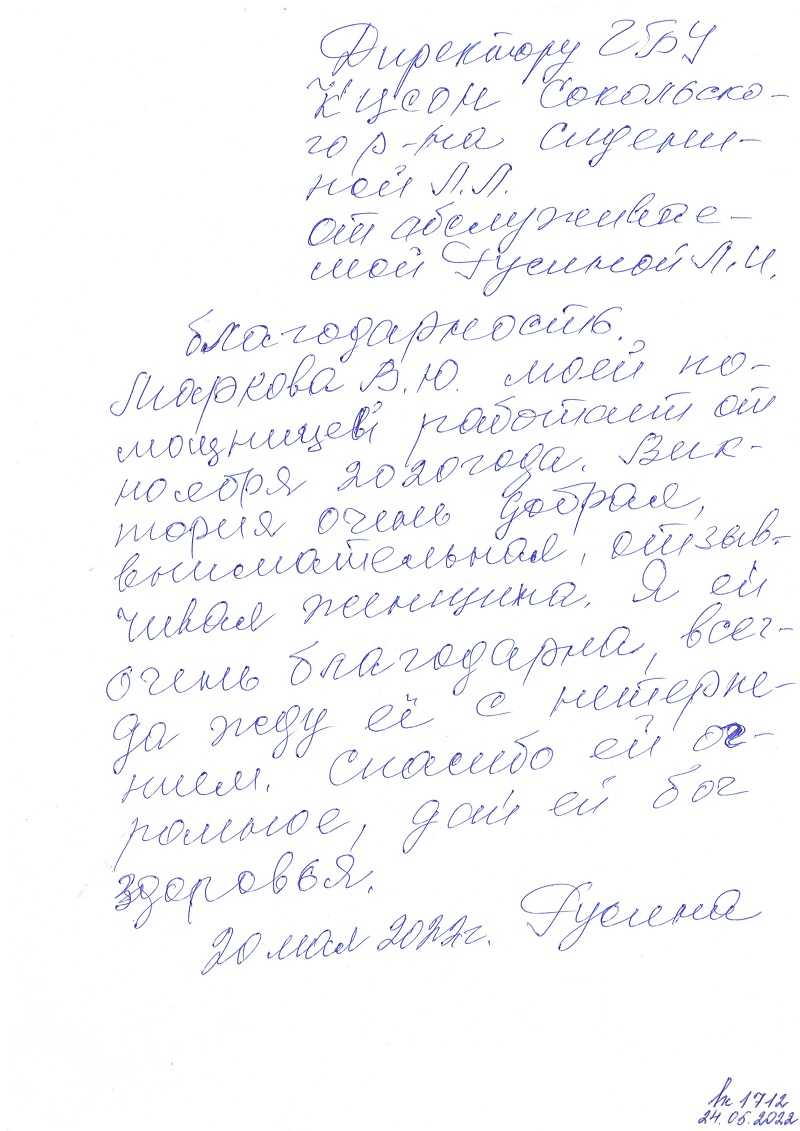 Директору ГБУ
КЦСОН Сокольско-
го р-на Сидени-
ной Л.Л.
от абслуживае-
мой Гусиной Л.И.
благодарность.
Маркова В.Ю. моей по-
мощницей работает от
ноября 2020 года. Вик-
тория очень добрая,
внимательная, отзыв-
чивая женщина. Я ей
очень благодарна, всег-
да жду её с нетерпе-
нием. Спасибо ей ог-
ромное, дай ей бог
здоровья.
20 мая 2022 г. Гусина
вх 1712
24.05.2022